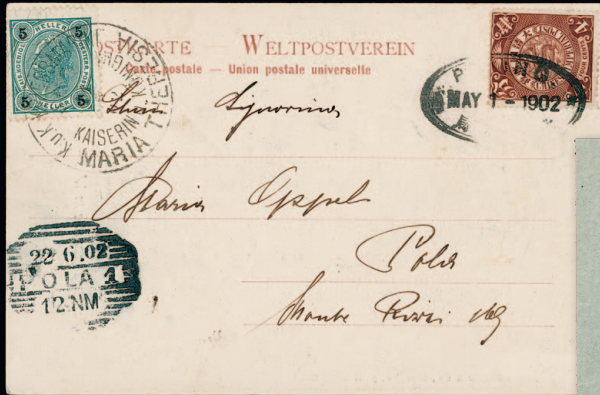 POSTKARTE — WELTPOSTVEREIN
Carte postale — Union postale universelle
5 5
HELLER
5 5
K.u.K.
KAISERIN
MARIA THERESIA
4 4
MAY 1 - 1902
Signorina
Maria Oppel
Pola
Monte Rizzi
22 6.02
POLA 1
12.NM